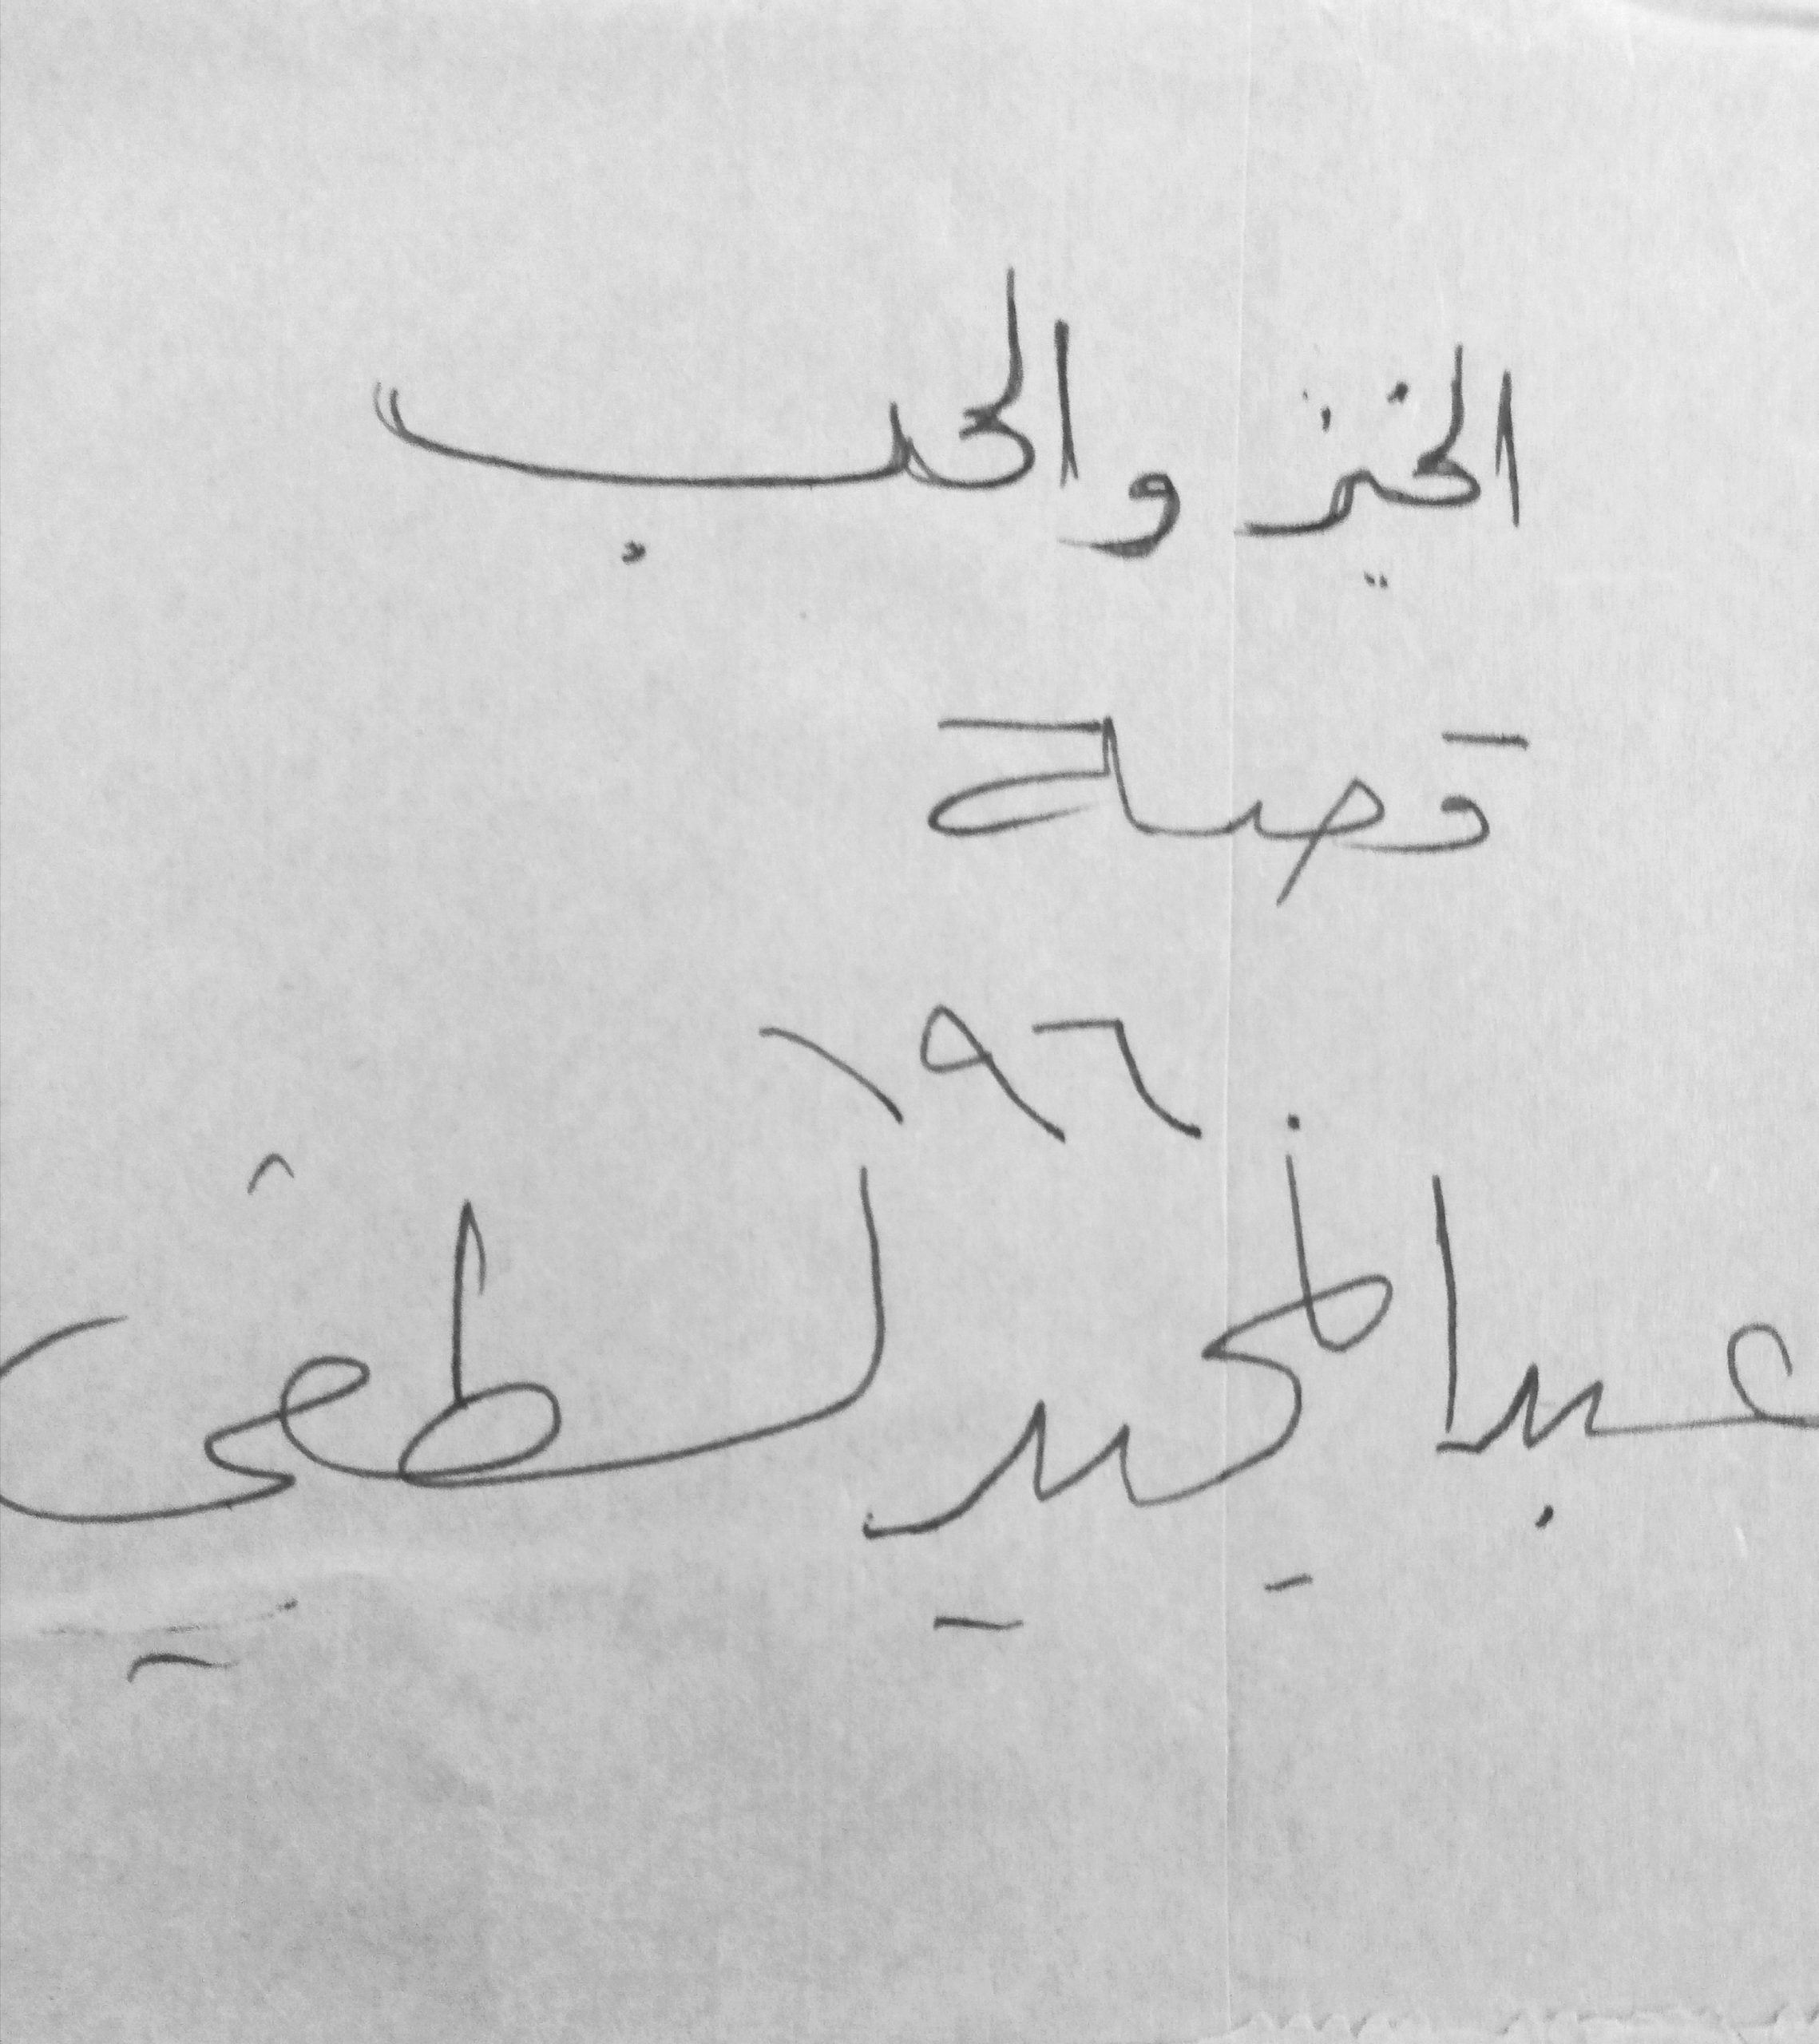 الخبز والحب
قصة
١٩٦٠
عبد المجيد لطفي